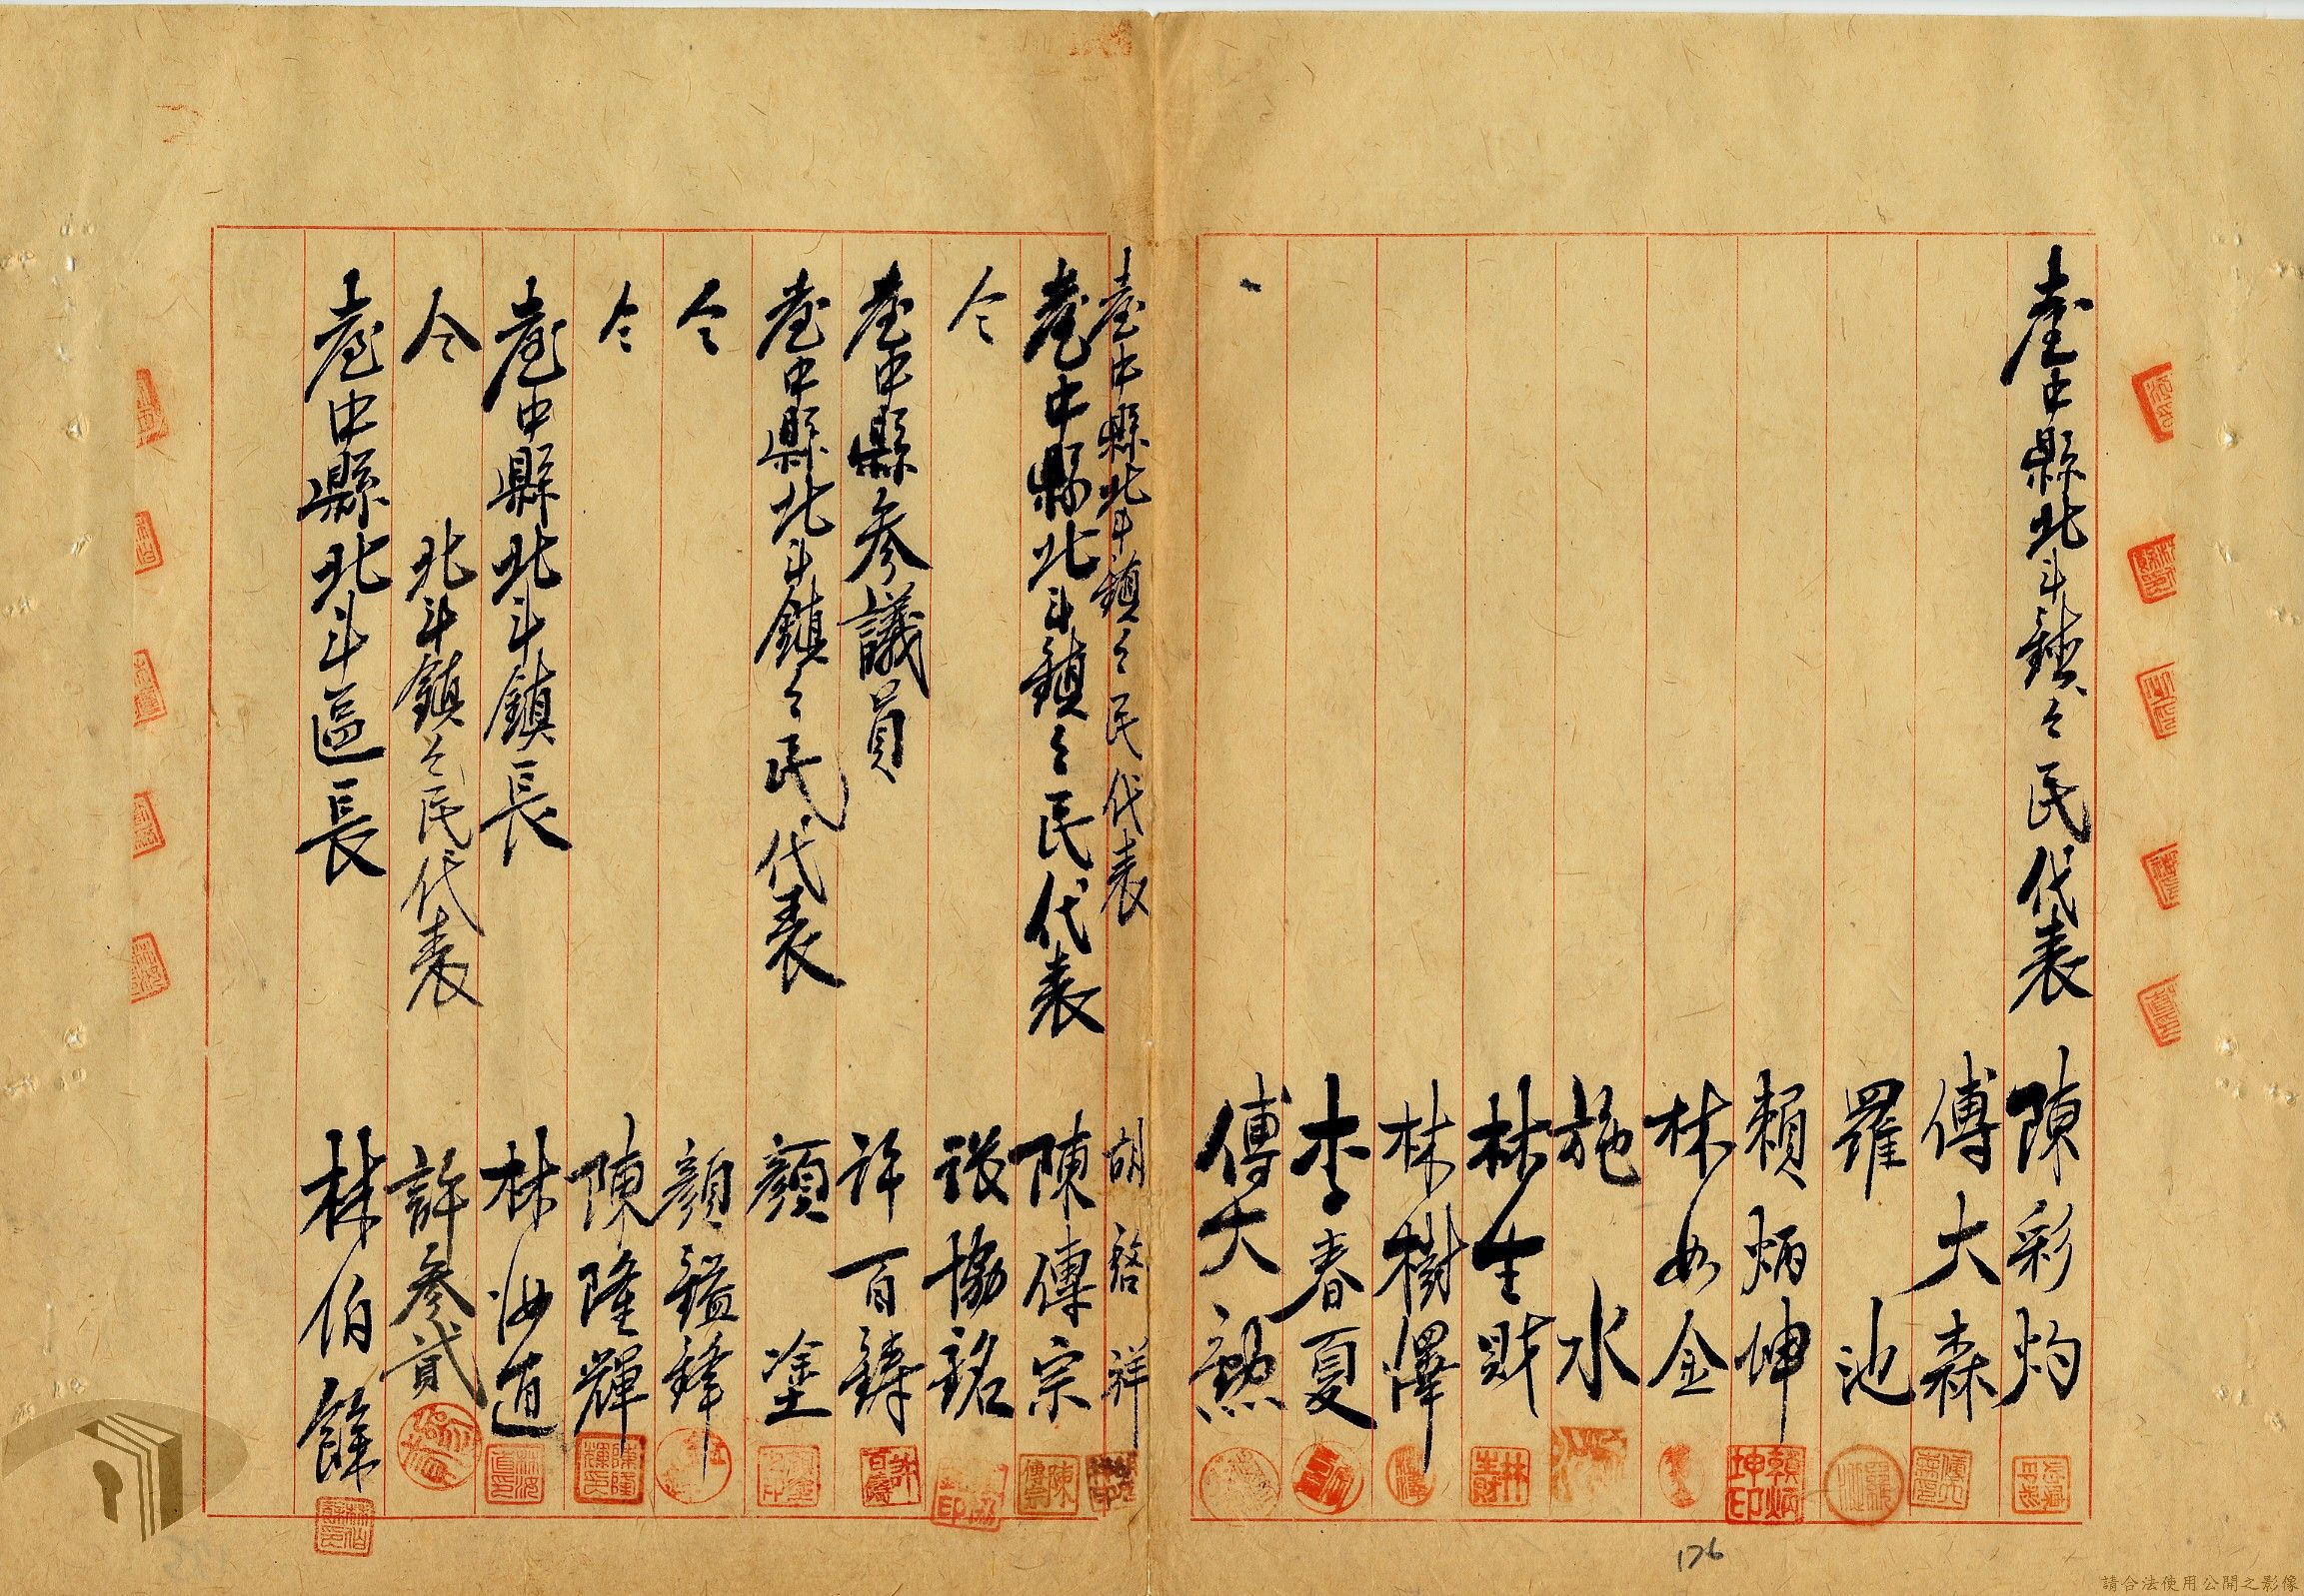 臺中縣北斗鎮公民代表 陳彩灼
傅大森
羅池
賴炳坤
林如金
施水
林生財
林樹澤
李春夏
傅大勲
臺中縣北斗鎮公民代表 胡啓祥
臺中縣北斗鎮公民代表 陳傳宗
仝 張協銘
臺中縣參議員 許百鑄
臺中縣北斗鎮公民代表 顏塗
仝 顏鎰鋒
仝 陳隆輝
臺中縣北斗鎮長 林海道
仝 北斗鎮公民代表 許叄貳
臺中縣北斗區長 林伯餘
賴炳坤印
林生財
許百鑄
陳傳宗
陳隆輝
176
請合法使用公開之影像